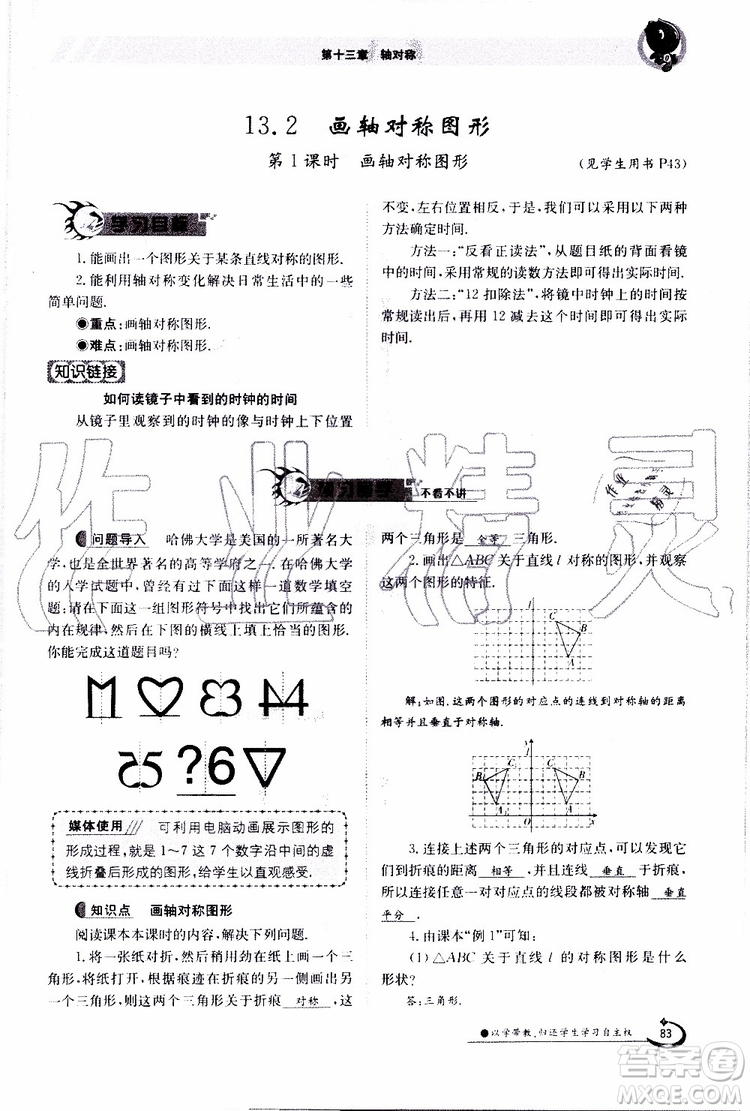 第十三章 轴对称
13.2 画轴对称图形
第1课时 画轴对称图形 (见学生用书 P43)
学习目标
1.能画出一个图形关于某条直线对称的图形.
2.能利用轴对称变化解决日常生活中的一些
简单问题.
◉重点:画轴对称图形.
◉难点:画轴对称图形.
知识链接
如何读镜子中看到的时钟的时间
从镜子里观察到的时钟的像与时钟上下位置
不变,左右位置相反,于是,我们可以用以下两种
方法确定时间.
方法一:“反看正读法”,从题目纸的背面看镜
中的时间,采用常规的读数方法即可得出实际时间.
方法二:“12 扣除法”,将镜中时钟上的时间按
常规读出后,再用 12 减去这个时间即可得出实际
时间.
不看不讲
问题导入 哈佛大学是美国的一所著名大
学,也是全世界著名的高等学府之一.在哈佛大学
的入学试题中,曾经有过这样一道数学填空
题:请在下面这一组图形符号中找出它们所蕴含的
内在规律,然后在下图的横线上填上恰当的图形.
你能完成这道题目吗?
?
媒体使用 可利用电脑动画展示图形的
形成过程,就是 1~7 这 7 个数字沿中间的虚
线折叠后形成的图形,给学生以直观感受.
知识点 画轴对称图形
阅读课本本课时的内容,解决下列问题.
1.将一张纸对折,然后稍用劲在纸上画一个三
角形,将纸打开,根据痕迹在折痕的另一侧画出三
角形,则这两个三角形关于折痕 对称 ,这
两个三角形是 全等 三角形.
2.画出△ABC 关于直线 l 对称的图形,并观察
这两个图形的特征.
l
C
B
A
解:如图,这两个图形的对应点的连线到对称轴的距离
相等并且垂直于对称轴.
y
l
C₁ C
B₁ B
A₁ A
O x
3.连接上述两个三角形的对应点,两个对应点
到折痕的距离 相等 ,并且线段 垂直 于折痕,
所以连接任意一对对应点的线段都被对称轴 垂直
平分 .
4.由课本“例 1”可知:
(1)△ABC 关于直线 l 的对称图形是什么
形状?
答:三角形.
●以学带教,归还学生学习自主权 83
作业精灵
作业
精灵
答案圈
MXQE.COM